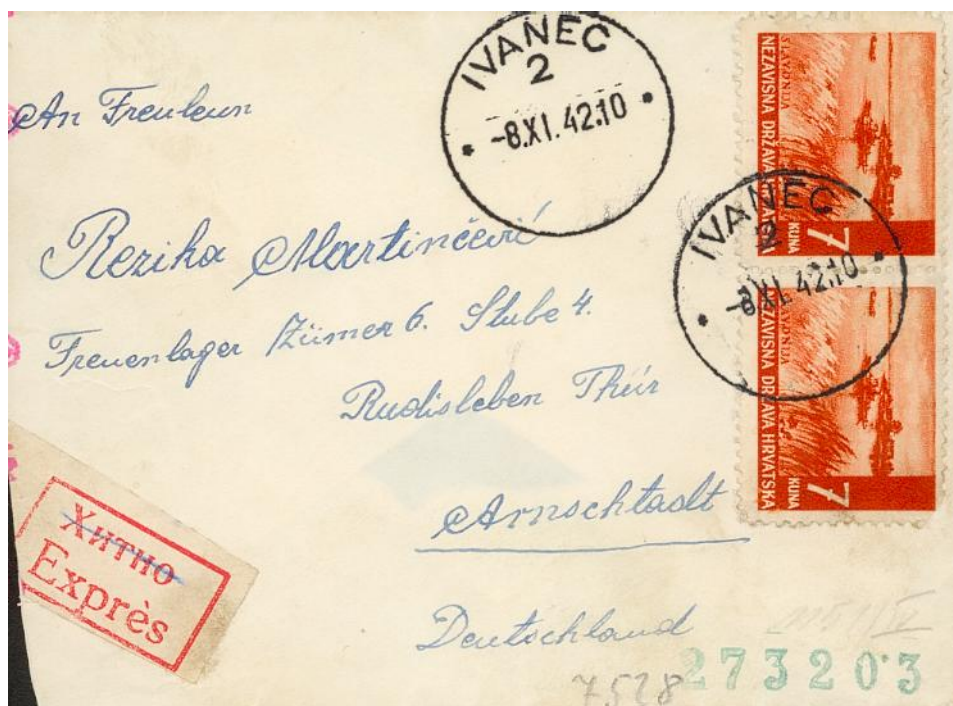 IVANEC
2
-8.XI.42.10
SLAVONIJA
NEZAVISNA DRŽAVA HRVATSKA
KUNA
7
IVANEC
2
-8.XI.42.10
SLAVONIJA
NEZAVISNA DRŽAVA HRVATSKA
KUNA
7
An Freuleun
Rezika Martinčević
Freuenlager Zümer 6. Stube 4.
Rudisleben Thür
Arnschtadt
Deutschland
Хитно
Exprès
7528
273203